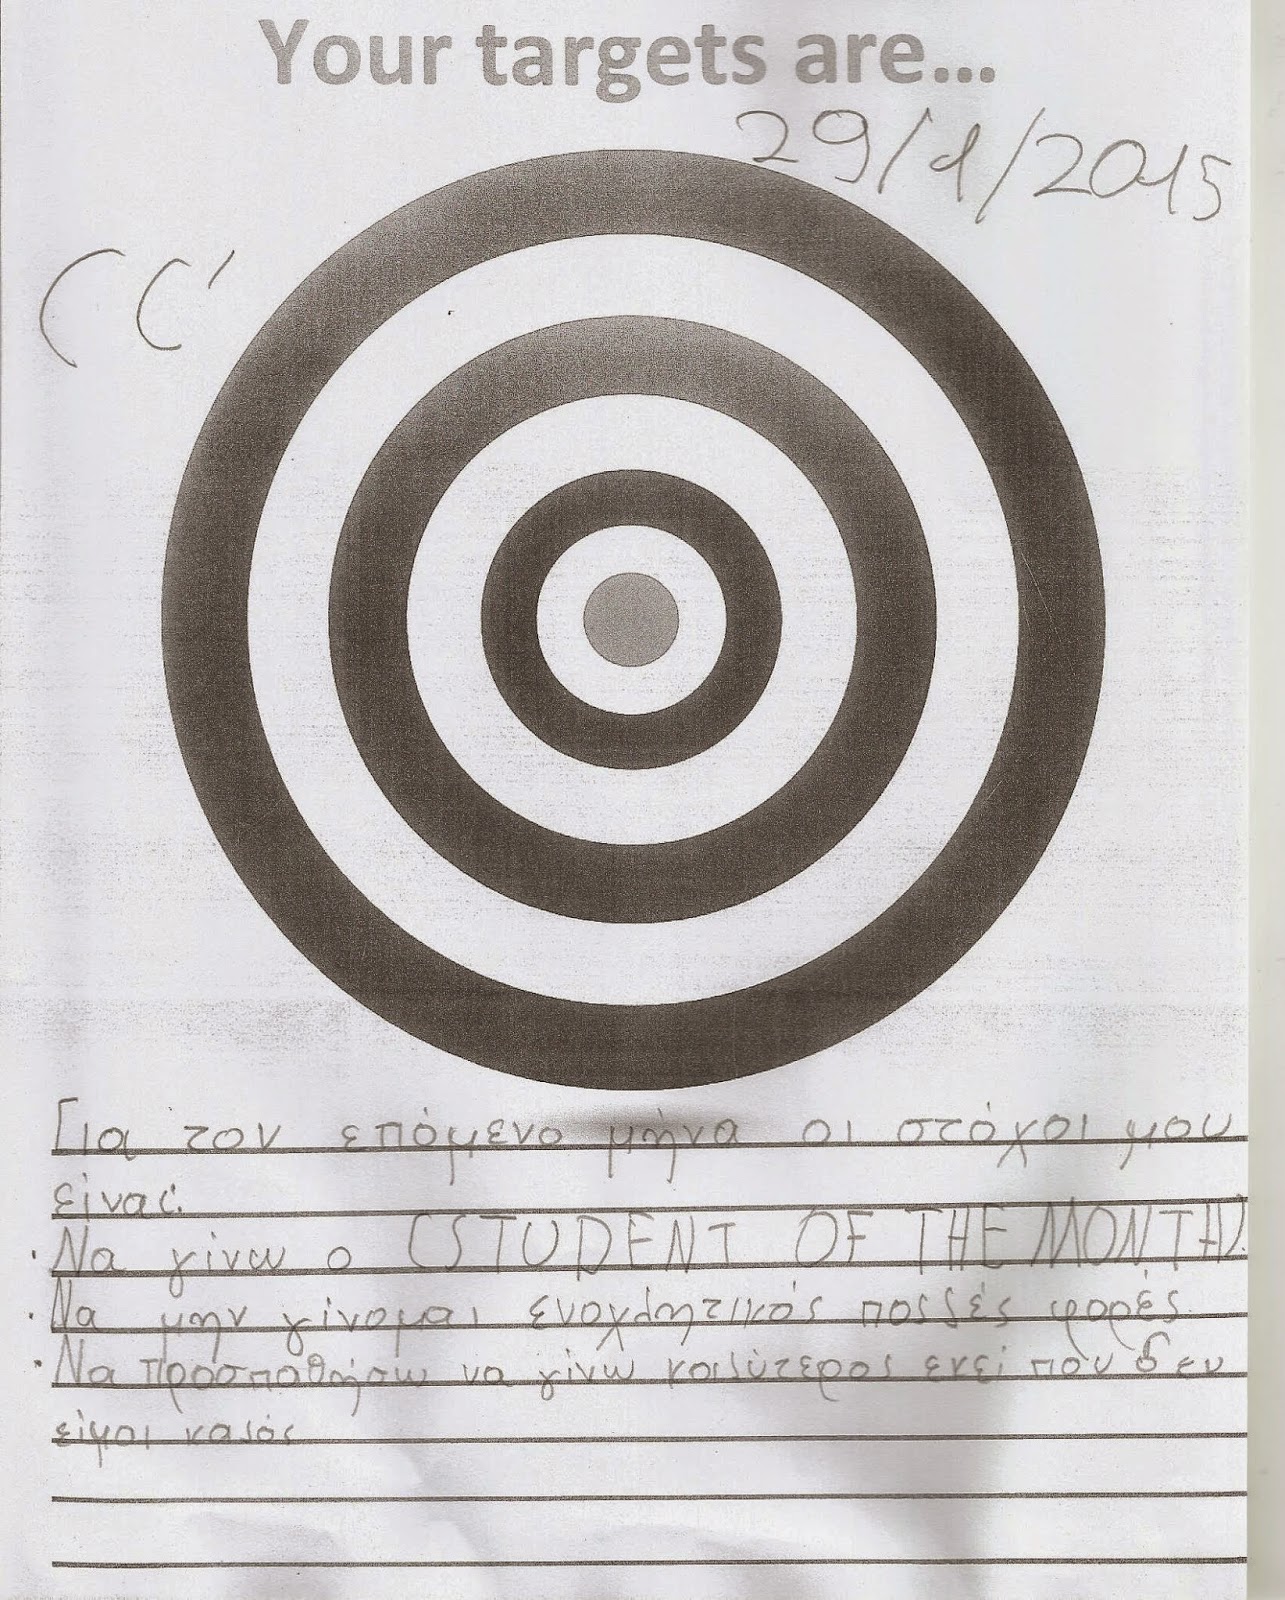 Your targets are...
29/1/2015
Για τον επόμενο μήνα οι στόχοι μου
είναι:
· Να γίνω ο (STUDENT OF THE MONTH).
· Να μην γίνομαι ενοχλητικός πολλές φορές.
· Να προσπαθήσω να γίνω καλύτερος εκεί που δεν
είμαι καλός